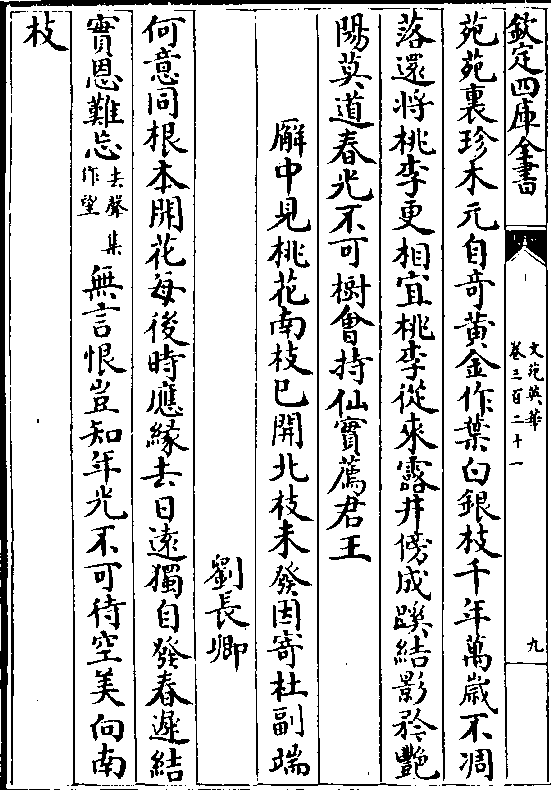 欽定四庫全書
文苑英華
卷三百二十一
九
苑苑裏珍木元自竒黄金作葉白銀枝千年萬歳不凋
落還將桃李更相宜桃李從來露井傍成蹊結影矜艶
陽莫道春光不可樹會持仙實薦君王
廨中見桃花南枝已開北枝未發因寄杜副端
劉長卿
何意同根本開花每後時應緣去日逺獨自發春遲結
實恩難忘去聲集作望無言恨豈知年光不可待空羡向南
枝